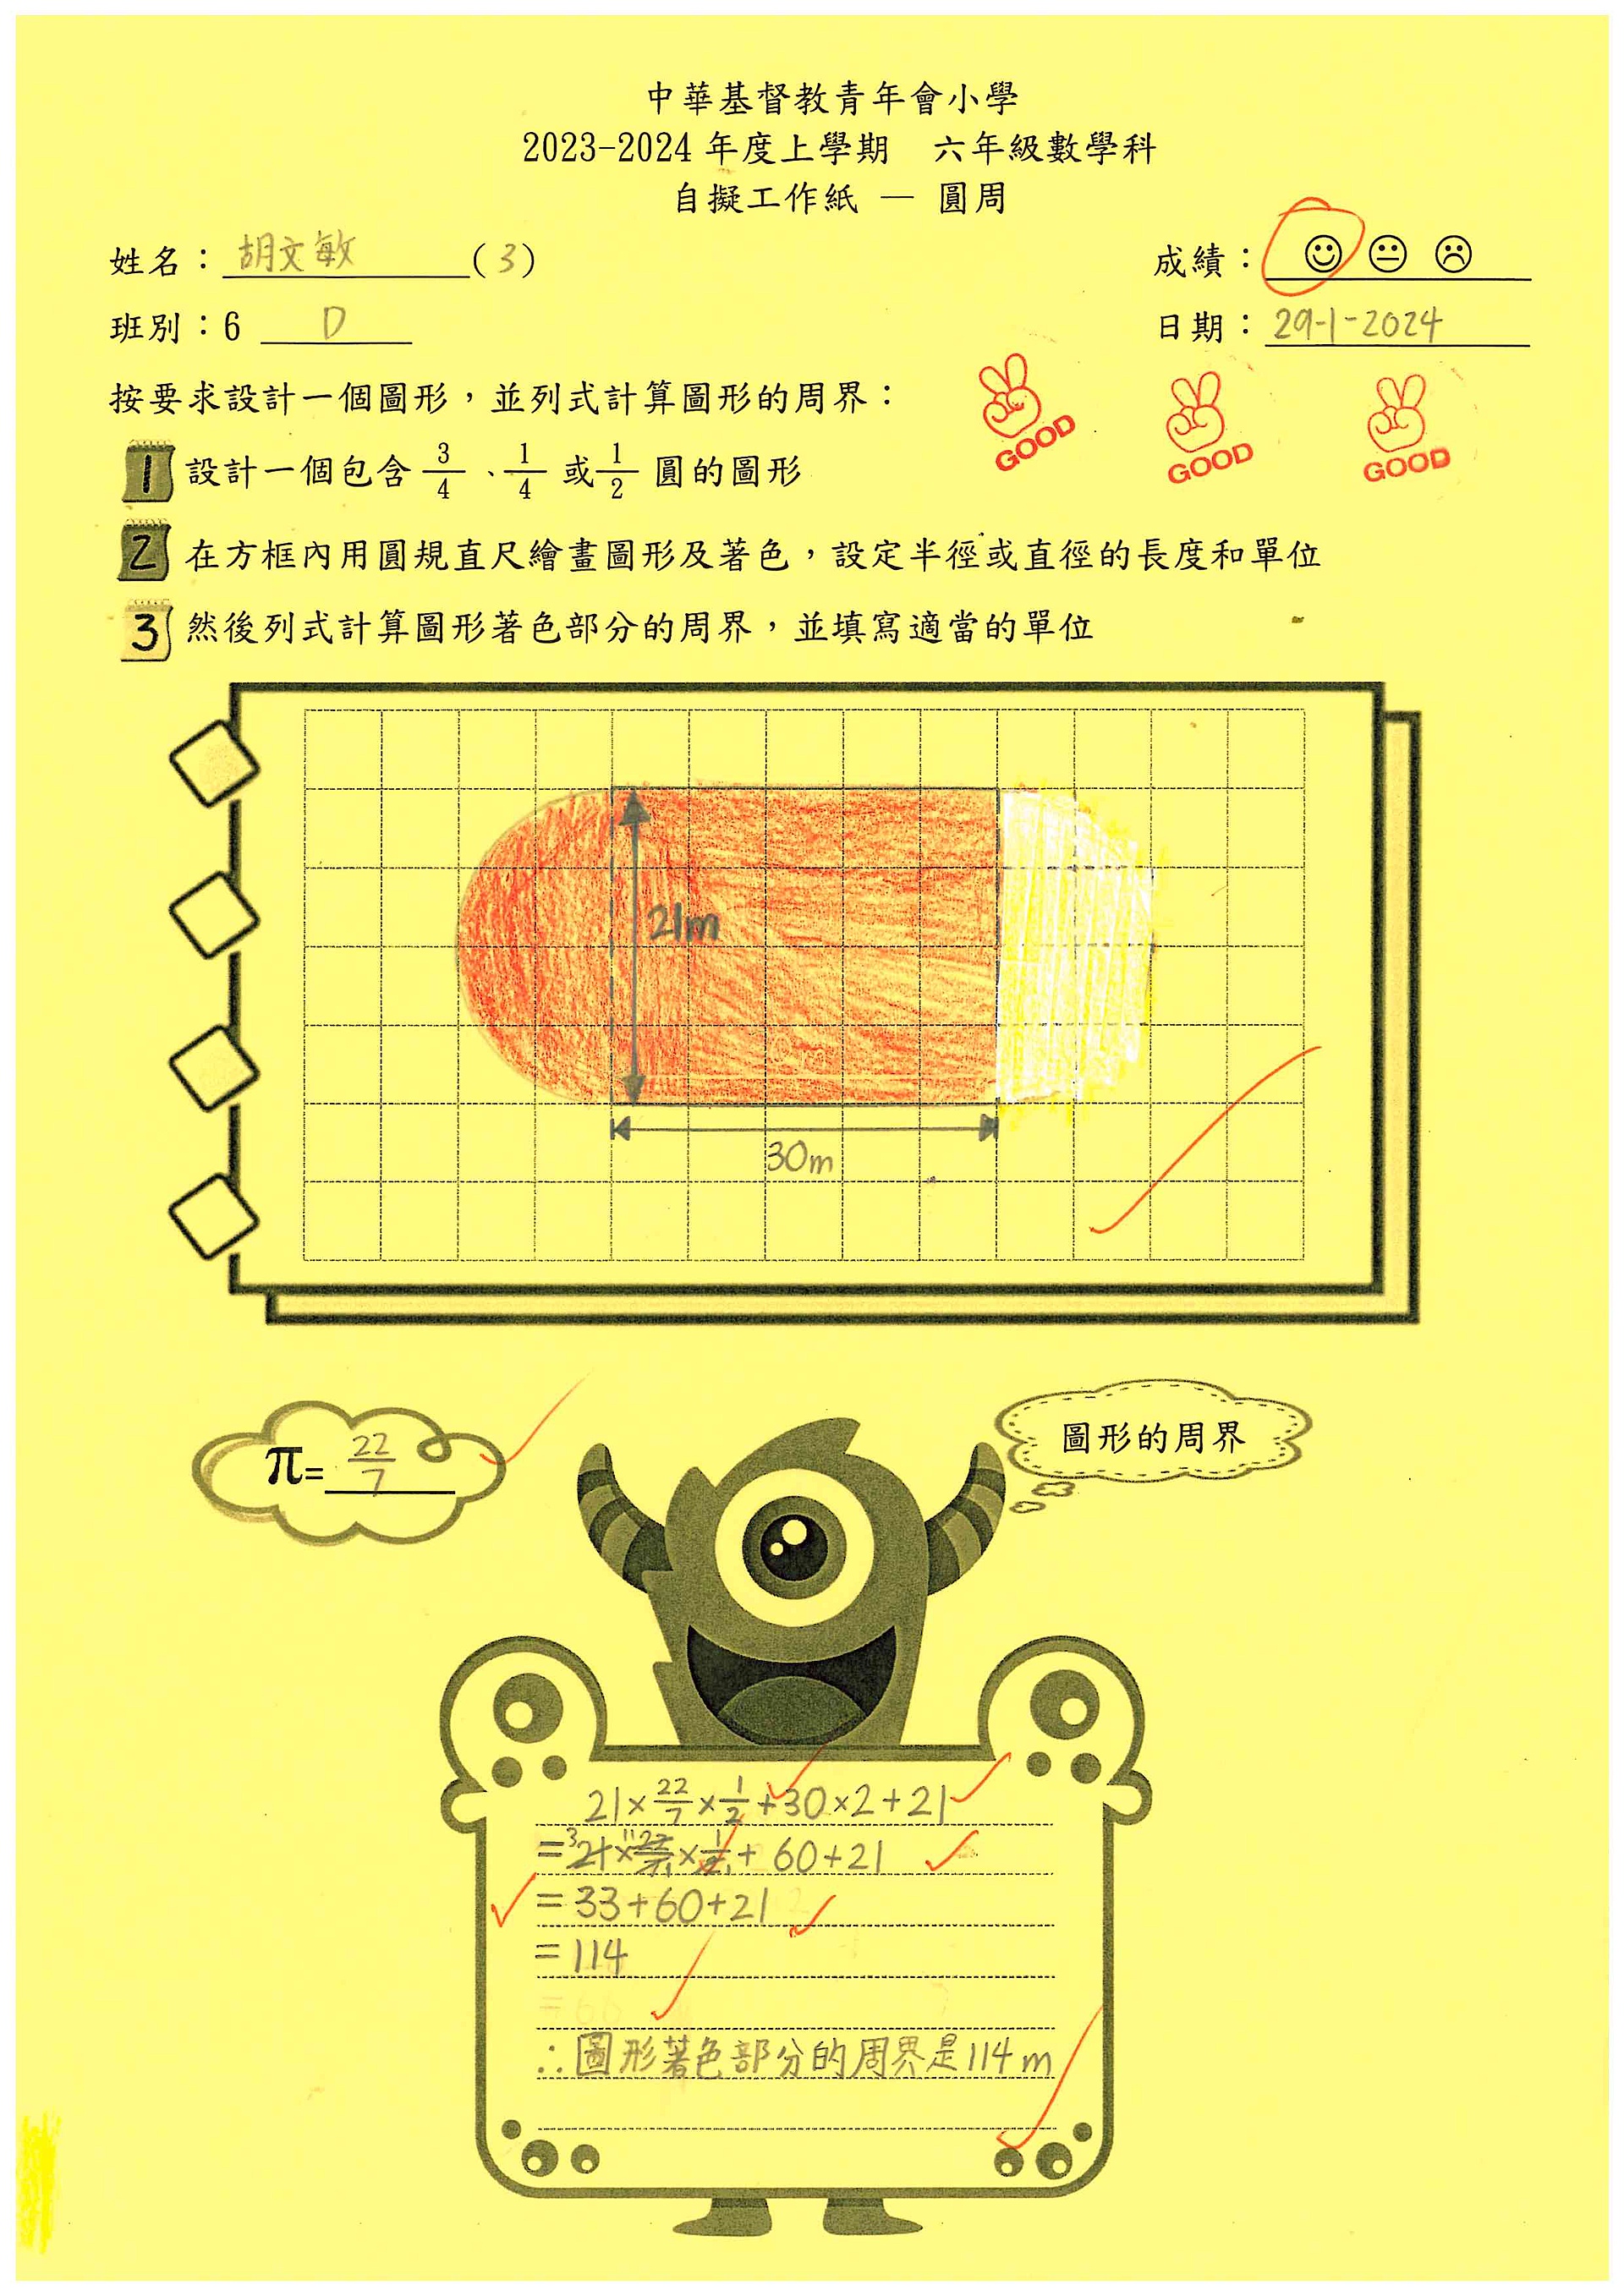 中華基督教青年會小學
2023-2024 年度上學期 六年級數學科
自擬工作紙 — 圓周
姓名：胡文敏(3)
成績：
班別：6 D
日期：29-1-2024
按要求設計一個圖形，並列式計算圖形的周界：
GOOD GOOD GOOD
1 設計一個包含 3/4 、1/4 或 1/2 圓的圖形
2 在方框內用圓規直尺繪畫圖形及著色，設定半徑或直徑的長度和單位
3 然後列式計算圖形著色部分的周界，並填寫適當的單位
21m
30m
π= 22/7
圖形的周界
21×22/7×1/2+30×2+21
=21×22/7×1/2+60+21
=33+60+21
=114
∴圖形著色部分的周界是114m